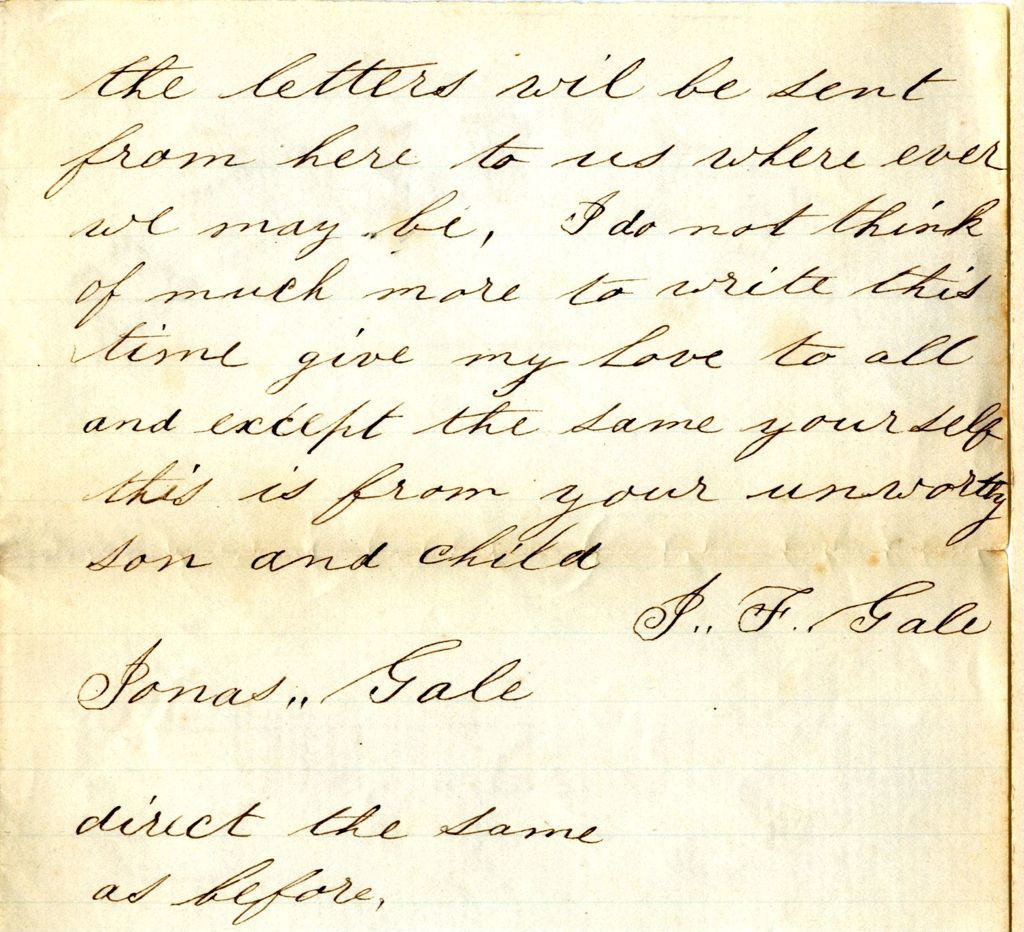 the letters wil be sent
from here to us where ever
we may be, I do not think
of much more to write this
time give my love to all
and except the same your self
this is from your unworthy
son and child
J.. F. Gale
Jonas,, Gale
direct the same
as before,